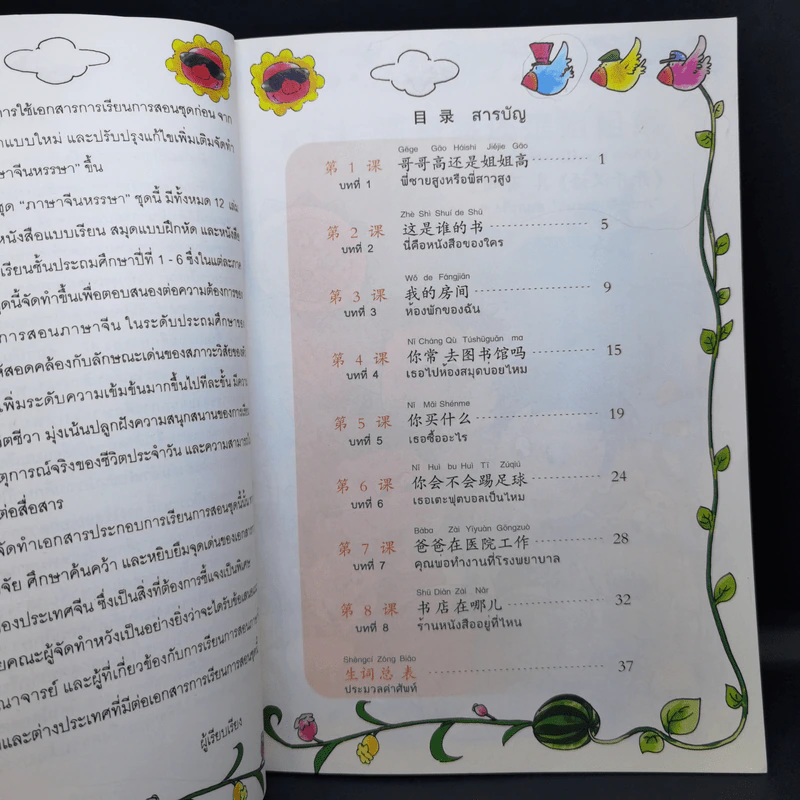 การใช้เอกสารการเรียนการสอนชุดก่อน จาก
แบบใหม่ และปรับปรุงแก้ไขเพิ่มเติมจัดทำ
ษาจีนหรรษา" ขึ้น
ชุด "ภาษาจีนหรรษา" ชุดนี้ มีทั้งหมด 12 เล่ม
หนังสือแบบเรียน สมุดแบบฝึกหัด และหนังสือ
เรียนชั้นประถมศึกษาปีที่ 1 - 6 ซึ่งในแต่ละภาค
ชุดนี้จัดทำขึ้นเพื่อตอบสนองต่อความต้องการของ
การสอนภาษาจีน ในระดับประถมศึกษาของ
ห้สอดคล้องกับลักษณะเด่นของสภาวะวิสัยของ
เพิ่มระดับความเข้มข้นมากขึ้นไปทีละขั้น มีความ
ชีวา มุ่งเน้นปลูกฝังความสนุกสนานของการเรียน
ตุการณ์จริงของชีวิตประจำวัน และความสามารถใน
ต่อสื่อสาร
จัดทำเอกสารประกอบการเรียนการสอนชุดนี้นั้น
จัย ศึกษาค้นคว้า และหยิบยืมจุดเด่นของเอกสาร
ของประเทศจีน ซึ่งเป็นสิ่งที่ต้องการชี้แจงเป็นพิเศษ
คณะผู้จัดทำหวังเป็นอย่างยิ่งว่าจะได้รับข้อเสนอแนะ
ณาจารย์ และผู้ที่เกี่ยวข้องกับการเรียนการสอนภาษา
และต่างประเทศที่มีต่อเอกสารการเรียนการสอนชุดนี้
ผู้เรียบเรียง
目 录 สารบัญ
Gēge Gāo Háishi Jiějie Gāo
第 1 课 哥哥高还是姐姐高 1
บทที่ 1 พี่ชายสูงหรือพี่สาวสูง
Zhè Shì Shuí de Shū
第 2 课 这是谁的书 5
บทที่ 2 นี่คือหนังสือของใคร
Wǒ de Fángjiān
第 3 课 我的房间 9
บทที่ 3 ห้องพักของฉัน
Nǐ Cháng Qù Túshūguǎn ma
第 4 课 你常去图书馆吗 15
บทที่ 4 เธอไปห้องสมุดบ่อยไหม
Nǐ Mǎi Shénme
第 5 课 你买什么 19
บทที่ 5 เธอซื้ออะไร
Nǐ Huì bu Huì Tī Zúqiú
第 6 课 你会不会踢足球 24
บทที่ 6 เธอเตะฟุตบอลเป็นไหม
Bàba Zài Yīyuàn Gōngzuò
第 7 课 爸爸在医院工作 28
บทที่ 7 คุณพ่อทำงานที่โรงพยาบาล
Shū Diàn Zài Nǎr
第 8 课 书店在哪儿 32
บทที่ 8 ร้านหนังสืออยู่ที่ไหน
Shēngcí Zǒng Biǎo
生词总表 37
ประมวลคำศัพท์